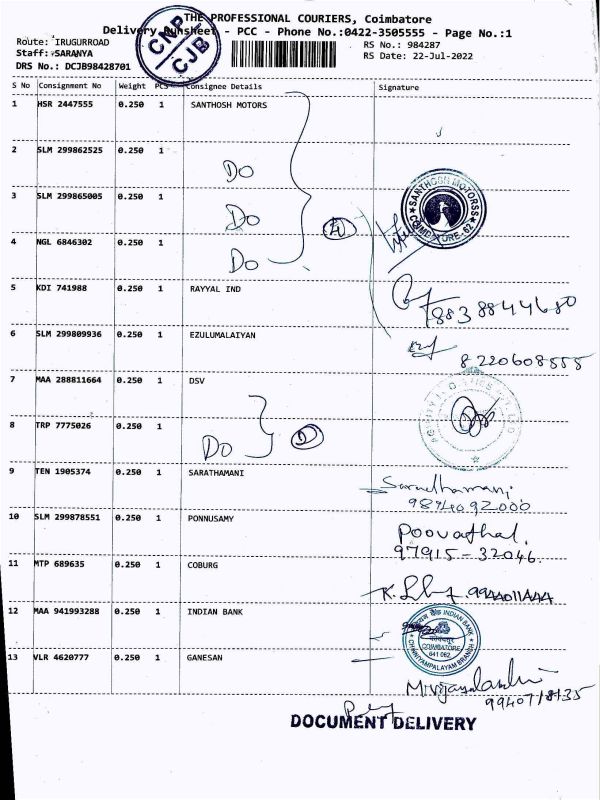 THE PROFESSIONAL COURIERS, Coimbatore
Delivery Runsheet - PCC - Phone No.:0422-3505555 - Page No.:1
CNP
CJB
Route: IRUGURROAD
RS No.: 984287
Staff: SARANYA
RS Date: 22-Jul-2022
DRS No.: DCJB98428701
S No Consignment No Weight PCS Consignee Details Signature
1 HSR 2447555 0.250 1 SANTHOSH MOTORS
2 SLM 299862525 0.250 1
Do
3 SLM 299865005 0.250 1
Do
SANTHOSH MOTORSS
COIMBATORE-62
4 NGL 6846302 0.250 1
Do
5 KDI 741988 0.250 1 RAYYAL IND
8838844680
6 SLM 299809936 0.250 1 EZULUMALAIYAN
8220608555
7 MAA 288811664 0.250 1 DSV
8 TRP 7775026 0.250 1
Do
9 TEN 1905374 0.250 1 SARATHAMANI
Saradhamani
9874092000
10 SLM 299878551 0.250 1 PONNUSAMY
Poovathal.
97915-32046.
11 MTP 689635 0.250 1 COBURG
9944011444
12 MAA 941993288 0.250 1 INDIAN BANK
INDIAN BANK
COIMBATORE
641 062
CHINNIYAMPALAYAM BRANCH
13 VLR 4620777 0.250 1 GANESAN
M.Vijayalakshmi
9940718135
DOCUMENT DELIVERY